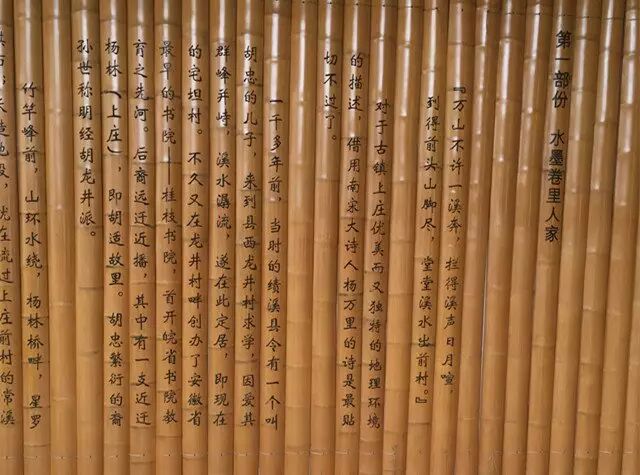 第一部份 水墨卷里人家
『万山不许一溪奔，拦得溪声日月喧，
到得前头山脚尽，堂堂溪水出前村。』
对于古镇上庄优美而又独特的地理环境
的描述，借用南宋大诗人杨万里的诗是最贴
切不过了。
一千多年前，当时的绩溪县令有一个叫
胡忠的儿子，来到县西龙井村求学，因爱其
群峰并峙，溪水潺流，遂在此定居，即现在
的宅坦村。不久又在龙井村畔创办了安徽省
最早的书院——桂枝书院，首开皖省书院教
育之先河。后裔远迁近播，其中有一支近迁
杨林（上庄），即胡适故里。胡忠繁衍的裔
孙世称明经胡龙井派。
竹竿峰前，山环水绕，杨林桥畔，星罗
优在流过上庄前村的常溪